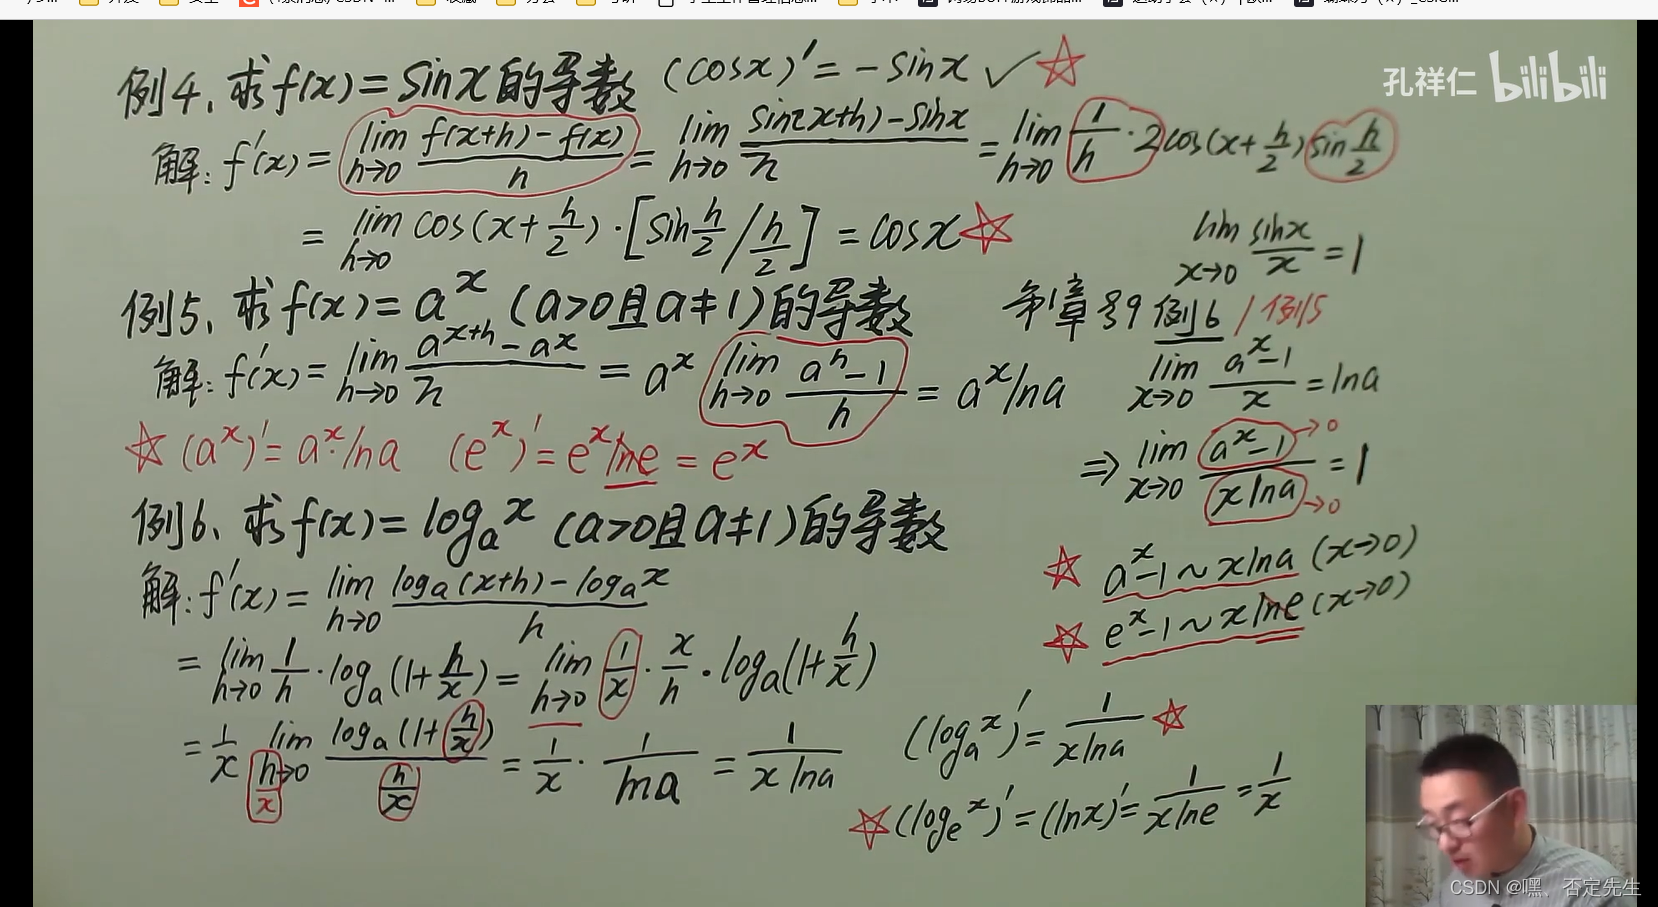 孔祥仁 bilibili
例4、求f(x)=sinx的导数 (cosx)'=-sinx ✓☆
解: f'(x)= lim h→0 (f(x+h)-f(x))/h = lim h→0 (sin(x+h)-sinx)/h = lim h→0 1/h · 2cos(x+h/2) sin h/2
= lim h→0 cos(x+h/2)·[sin h/2 / h/2] = cosx ☆
lim x→0 sinx/x = 1
例5、求f(x)=a^x (a>0且a≠1)的导数
第1章 §9 例6 / 例5
解: f'(x)= lim h→0 (a^(x+h)-a^x)/h = a^x lim h→0 (a^h-1)/h = a^x lna
lim x→0 (a^x-1)/x = lna
☆ (a^x)'=a^x·lna (e^x)'=e^x lne = e^x
⇒ lim x→0 (a^x-1)/(x lna) = 1 →0 →0
例6、求f(x)=log_a x (a>0且a≠1)的导数
☆ a^x-1 ~ x lna (x→0)
解: f'(x)= lim h→0 (log_a(x+h)-log_a x)/h
☆ e^x-1 ~ x lne (x→0)
= lim h→0 1/h · log_a(1+h/x) = lim h→0 1/x · x/h · log_a(1+h/x)
= 1/x lim h/x→0 log_a(1+h/x) / (h/x) = 1/x · 1/lna = 1/(x lna)
(log_a x)' = 1/(x lna) ☆
☆ (log_e x)' = (lnx)' = 1/(x lne) = 1/x
CSDN @嘿、否定先生